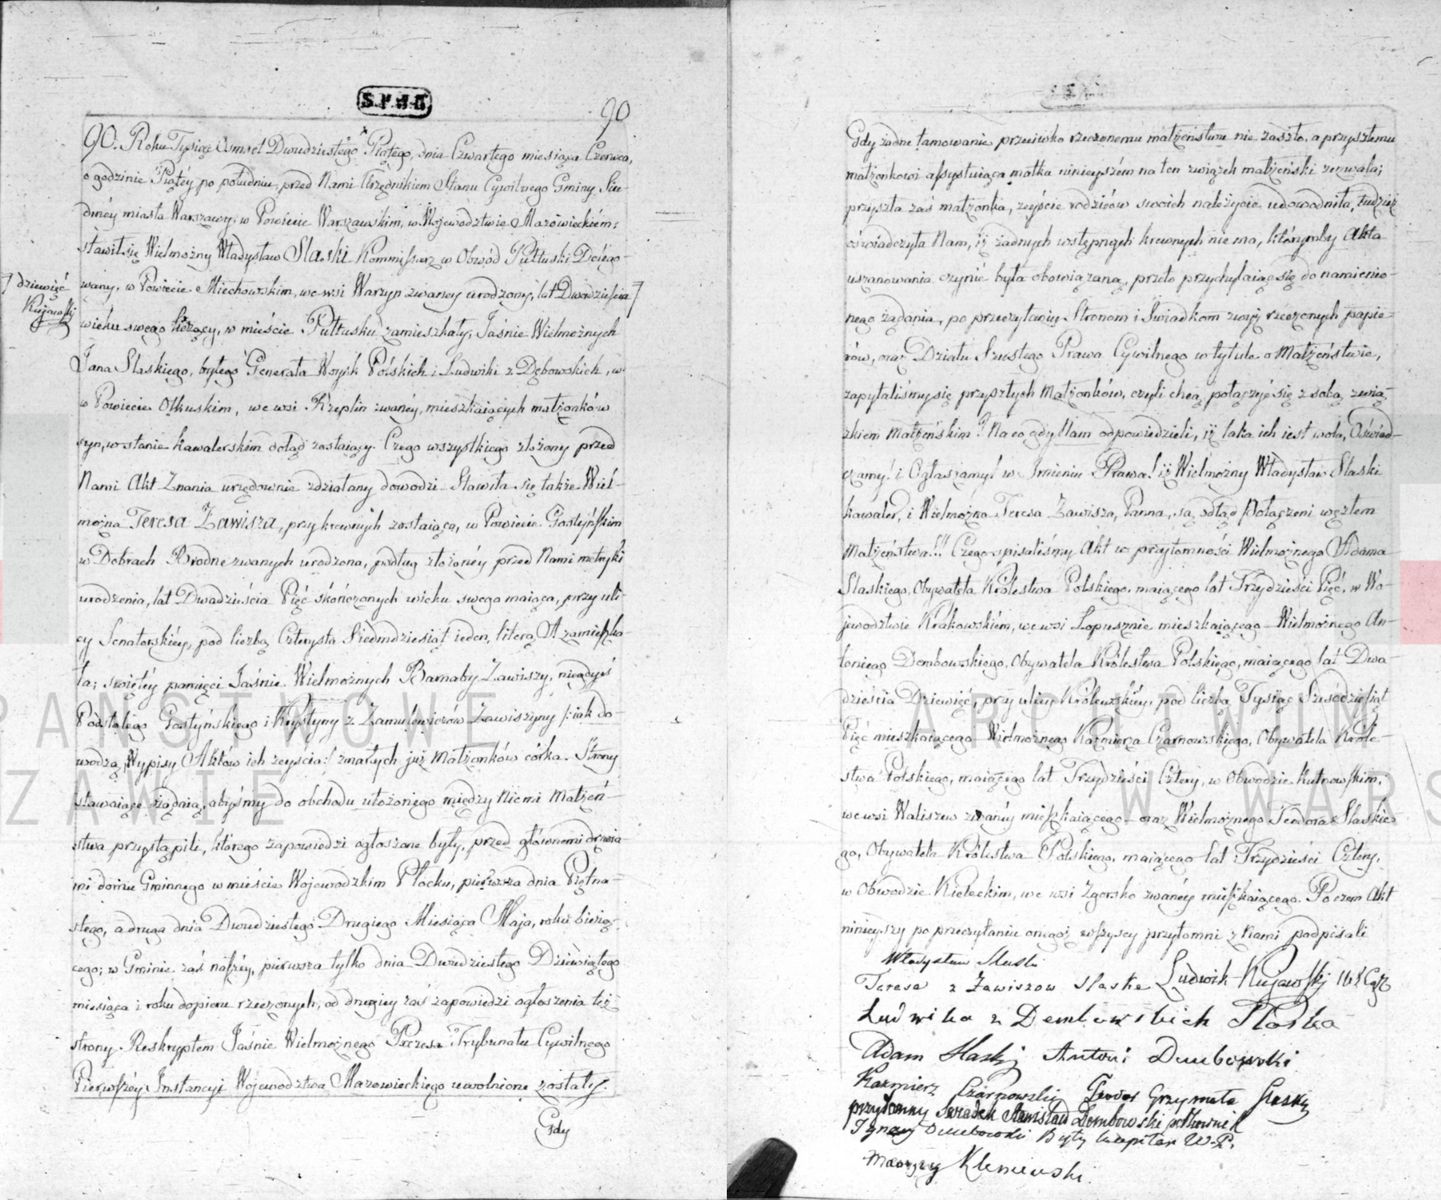 90
90. Roku Tysiąc Osmset Dwudziestego Piątego, dnia Czwartego miesiąca Czerwca,
o godzinie Piątey po południu, przed Nami Urzędnikiem Stanu Cywilnego Gminy Siu-
dméy miasta Warszawy, w Powiecie Warszawskim, w Województwie Mazowieckiém,
stawił się Wielmożny Władysław Slaski Kommissarz w Obwód Pułtuski Delego-
wany, w Powiecie Miechowskim, we wsi Warzyn zwaney urodzony, lat Dwadzieścia
dziewięć
Kujawski
wieku swego liczący, w mieście Pułtusku zamieszkały, Jaśnie Wielmożnych
Jana Slaskiego, byłego Generała Woysk Polskich i Ludwiki z Dębowskich, w
w Powiecie Olkuskim, we wsi Kzeplin zwanéy, mieszkaiących małżonków
syn, w stanie kawalerskim dotąd zostaiący. Czego wszystkiego złożony przed
Nami Akt Znania urzędownie zdziałany dowodzi. Stawiła się także Wiel-
można Teresa Zawisza, przy krewnych zostaiąca, w Powiecie Gostyńskim
w Dobrach Brodne zwanych urodzona, podług złożonéy przed Nami metryki
urodzenia, lat Dwadzieścia Pięć skończonych wieku swego maiąca, przy uli-
cy Senatorskiéy, pod liczbą Czterysta Siedmdziesiąt ieden, literą A zamieszka-
ła; swiętéy pamięci Jaśnie Wielmożnych Barnaby Zawiszy, niegdyś
Podstolego Gostyńskiego i Krystyny z Zamulewiczów Zawiszyny /:iak do-
wodzą Wypisy Aktów ich zeyścia:/ zmarłych już małżonków córka. Strony
stawaiące żądaią, abyśmy do obchodu ułożonego między Niemi Małżeń-
stwa przystąpili, którego zapowiedzi ogłoszone były, przed głównemi drzwia-
mi domu Gminnego w mieście Wojewodzkim Płocku, pierwsza dnia Piętna-
stego, a druga dnia Dwudziestego Drugiego Miesiąca Maja, roku bieżą-
cego; w Gminie zaś naszéy, pierwsza tylko dnia Dwudziestego Dziewiątego
miesiąca i roku dopiero rzeczonych, od drugiey zaś zapowiedzi ogłoszenia też
strony Reskryptem Jaśnie Wielmożnego Prezesa Trybunału Cywilnego
Pierwszéy Instancyi Województwa Mazowieckiego uwolnione zostały.
Gdy
Gdy żadne tamowanie przeciwko rzeczonemu małżeństwu nie zaszło, a przyszłemu
małżonkowi assystuiąca matka ninieyszém na ten związek małżeński zezwala;
przyszła zaś małżonka, zeyście rodziców swoich należycie udowodniła, tudzież
oświadczyła Nam, iż żadnych wstępnych krewnych nie ma, którymby Akta
uszanowania czynić była obowiązaną, przeto przychylaiąc się do namienio-
nego żądania, po przeczytaniu Stronom i Świadkom wszyst rzeczonych papie-
rów, oraz Działu Szóstego Prawa Cywilnego w tytule o Małżeństwie,
zapytaliśmy się przyszłych Małżonków, czyli chcą połączyć się z sobą zwią-
zkiem Małżeńskim? Na co gdy Nam odpowiedzieli, iż taka ich iest wola, Oświad-
czamy! i Ogłaszamy! w Imieniu Prawa! iż Wielmożny Władysław Slaski
kawaler, i Wielmożna Teresa Zawisza, Panna, są odtąd Połączeni węzłem
Małżeństwa!!! Czego spisaliśmy Akt w przytomności Wielmożnego Adama
Slaskiego, Obywatela Królestwa Polskiego, maiącego lat Trzydzieści Pięć, w Wo-
jewodztwie Krakowskiém, we wsi Łopusznie mieszkaiącego Wielmożnego An-
toniego Dembowskiego, Obywatela Królestwa Polskiego, maiącego lat Dwa-
dzieścia Dziewięć, przy ulicy Królewskiéy, pod liczbą Tysiąc Sześćdziesiąt
Pięć mieszkaiącego Wielmożnego Kazmierza Czarnowskiego, Obywatela Króle-
stwa Polskiego, maiącego lat Trzydzieści Cztery, w Obwodzie Kutnowskim,
we wsi Waliszew zwanéy mieszkaiącego oraz Wielmożnego Teodora Slaskie-
go, Obywatela Królestwa Polskiego, maiącego lat Trzydzieści Cztery,
w Obwodzie Kieleckim, we wsi Zgorsko zwanéy mieszkaiącego. Poczem Akt
ninieyszy po przeczytaniu onego, wszyscy przytomni z Nami podpisali
Władysław Slaski
Teresa z Zawiszów Slaska Ludwik Kujawski
Ludwika z Dembowskich Slaska
Adam Slaski Antoni Dembowski
Kazmierz Czarnowski Teodor Grzymała Slaski
przytomny Swiadek Stanisław Dembowski półkownik
Ignacy Dembowski Były kapitan W. P.
Maurycy Kleniewski
PAŃSTWOWE ARCHIWUM
W WARSZAWIE